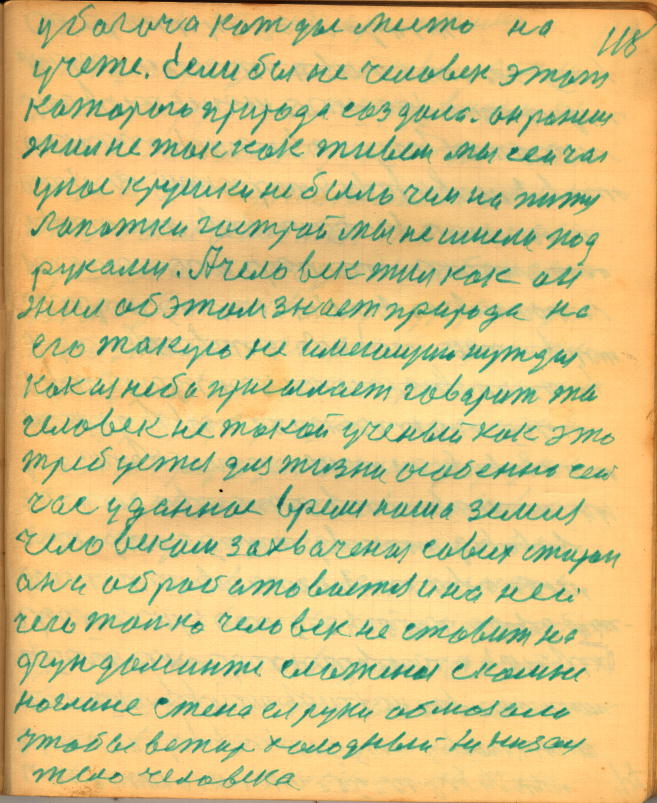 118
убогоча кожды место на
учете. Если бы не человек этот
которого природа создала. он раньш
жил не так как живем мы сейчас
у нас крушки не было чем на питя
Лапатки гострой мы не имели под
руками. А человек жил как он
жил об этом знает природа на
его такую не имеющию нужды
какая неба присилает говарит ты
человек не такой ученый как это
требуется для жизни особенно сей
час у данное время наша земля
человеком захвачена с обеих старон
она обработовается и на ней
чего только человек не ставит на
фундаминте сложена с камне
на глине стена ея руки обмозали
чтобы ветир холодный ни низал
тело человека